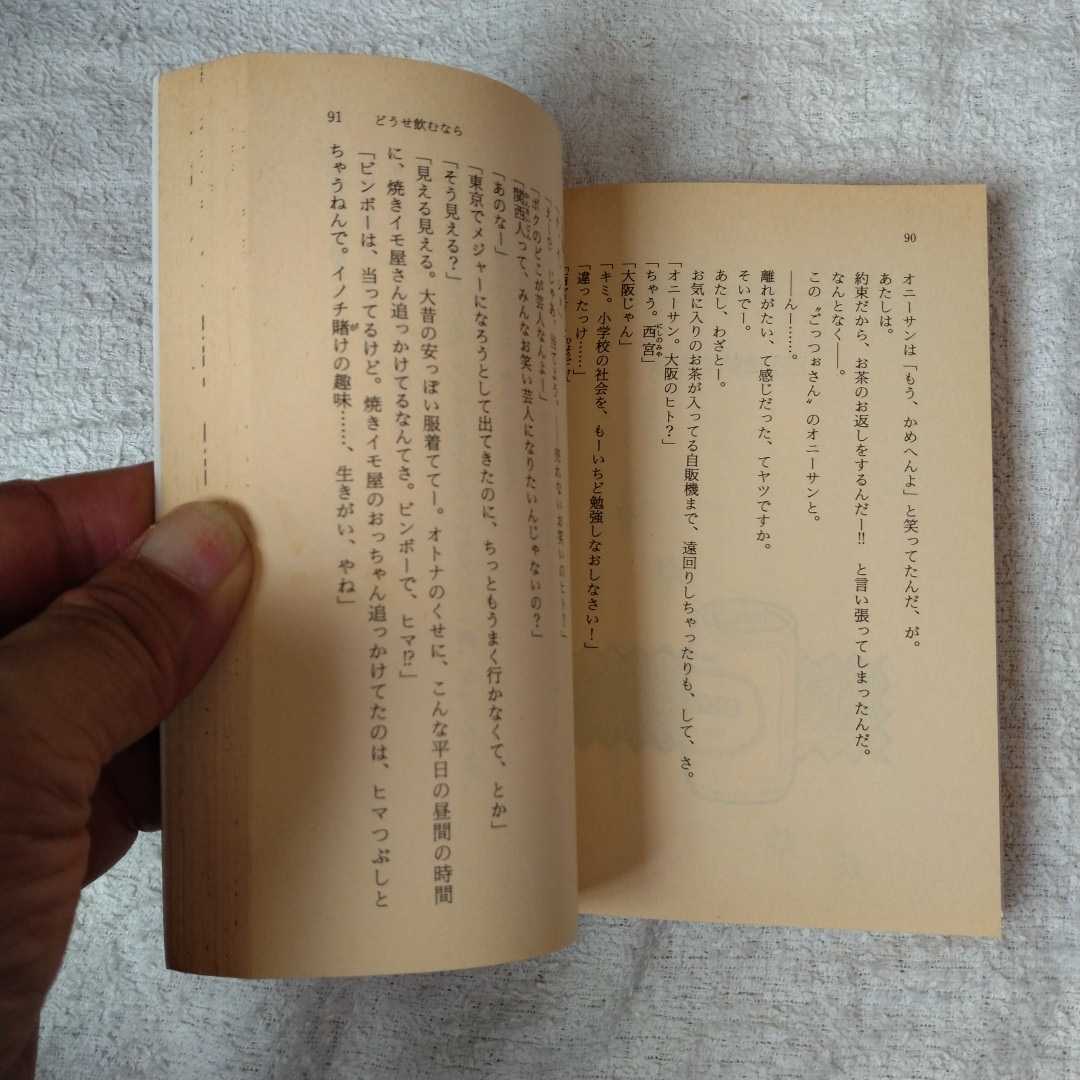 90
オニーサンは「もう、かめへんよ」と笑ってたんだ、が。
あたしは。
約束だから、お茶のお返しをするんだー!!　と言い張ってしまったんだ。
なんとなく――。
この〝ごっつぉさん〟のオニーサンと。
――んー……。
離れがたい、て感じだった、てヤツですか。
そいでー。
あたし、わざとー。
お気に入りのお茶が入ってる自販機まで、遠回りしちゃったりも、して、さ。
「オニーサン。大阪のヒト？」
「ちゃう。西宮」
にしのみや
「大阪じゃん」
「キミ。小学校の社会を、もーいちど勉強しなおしなさい！」
「違ったっけ……」
91　どうせ飲むなら
「ボクのどこが芸人なんよー」
「関西人って、みんなお笑い芸人になりたいんじゃないの？」
「あのなー」
「東京でメジャーになろうとして出てきたのに、ちっともうまく行かなくて、とか」
「そう見える？」
「見える見える。大昔の安っぽい服着ててー。オトナのくせに、こんな平日の昼間の時間
に、焼きイモ屋さん追っかけてるなんてさ。ビンボーで、ヒマ!?」
「ビンボーは、当ってるけど。焼きイモ屋のおっちゃん追っかけてたのは、ヒマつぶしと
ちゃうねんで。イノチ賭けの趣味……、生きがい、やね」
が